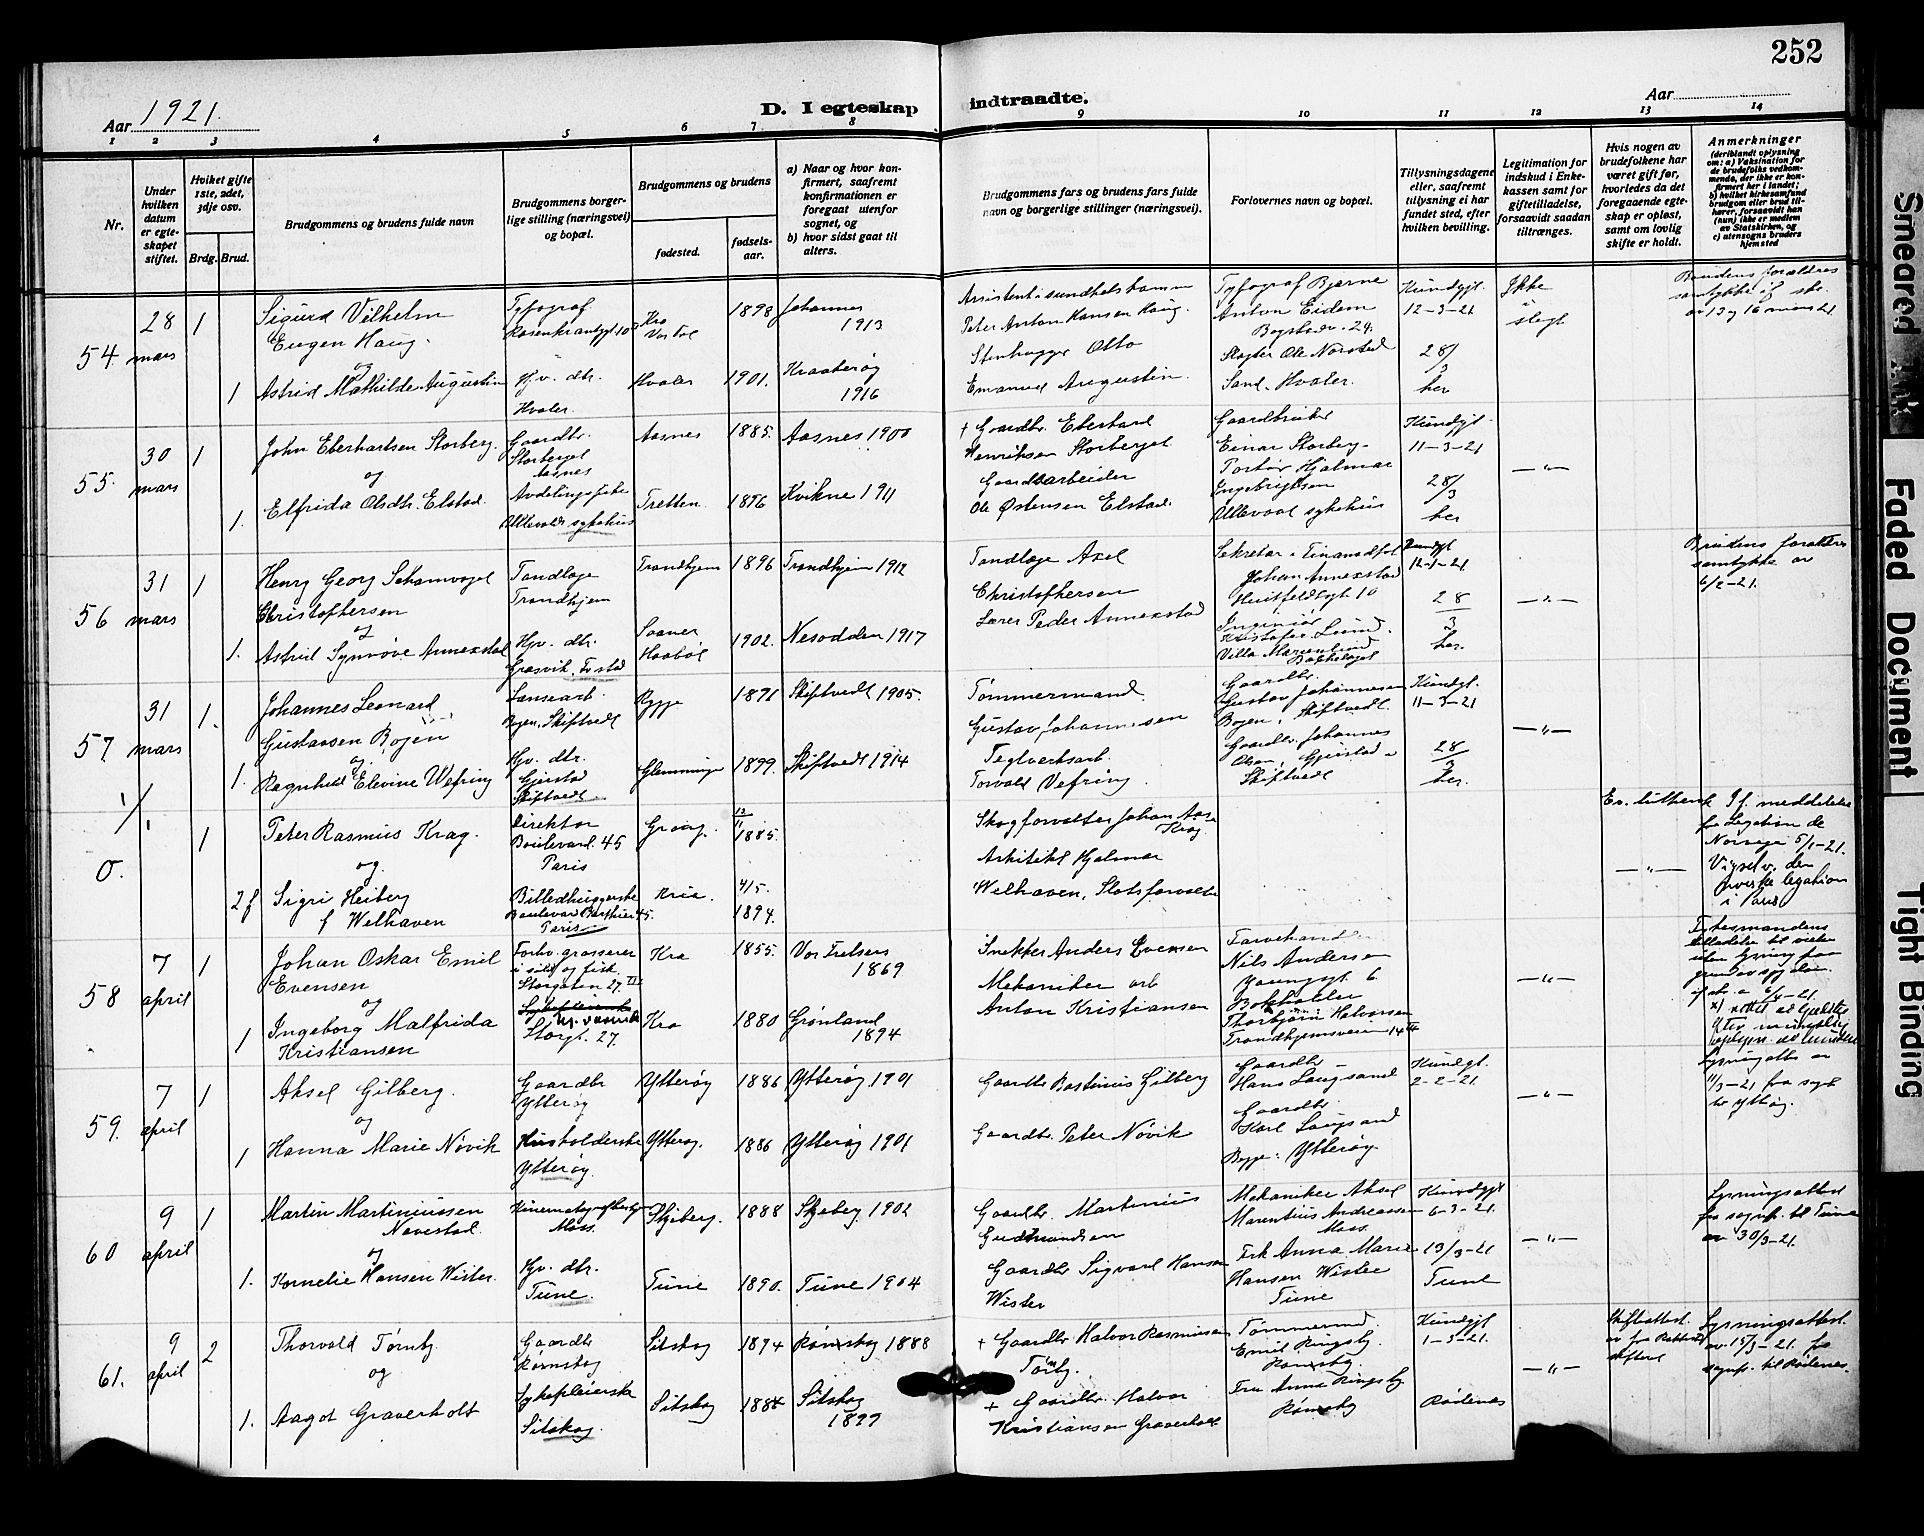 252
Aar 1921.
D. I egteskap indtraadte.
Aar
1 2 3 4 5 6 7 8 9 10 11 12 13 14
Nr.
Under hvilken datum er egteskapet stiftet.
Hviket gifte 1ste, 2det, 3dje osv.
Brdg. Brud.
Brudgommens og brudens fulde navn
Brudgommens borgerlige stilling (næringsvei) og bopæl.
Brudgommens og brudens
fødested.
fødselsaar.
a) Naar og hvor konfirmert, saafremt konfirmationen er foregaat utenfor sognet, og
b) hvor sidst gaat til alters.
Brudgommens fars og brudens fars fulde navn og borgerlige stillinger (næringsvei).
Forlovernes navn og bopæl.
Tillysningsdagene eller, saafremt tillysning ei har fundet sted, efter hvilken bevilling.
Legitimation for indskud i Enkekassen samt for giftetilladelse, forsaavidt saadan tiltrænges.
Hvis nogen av brudefolkene har været gift før, hvorledes da det foregaaende egteskap er opløst, samt om lovlig skifte er holdt.
Anmerkninger
(deriblandt oplysning om: a) Vaksination for de brudefolks vedkommende, der ikke er konfirmert her i landet; b) hvilket kirkesamfund brudgom eller brud tilhører, forsaavidt han (hun) ikke er medlem av Statskirken, og c) utensogns bruders hjemsted
54. 28 mars 1
Sigurd Vilhelm
Eugen Haug.
og
1 Astrid Mathilde Augustin
Typograf
Rosenkrantzgt. 10
Hjv. dtr.
Hvaler.
Kra
Hvaler
1898
1901.
Johannes
1913
Kraakerøy
1916
Peter Anton Hansen Haug.
Stenhugger Otto
Emanuel Augustin.
Typograf Bjarne
Anton Eidem
Bogstadv. 29.
Slagter Ole Norstad
Sand. Hvaler.
Kundgjt.
12-3-21
28/3
her
Ikke
i
slegt
Brudens forældres
samtykke if. skr.
av 13 og 16 mars 21
55. 30 mars 1
John Eberhartsen Storberg.
og
1. Elfrida Olsdtr. Elstad.
Gaardbr.
Storberget
Aasnes
Ullevold sykehus
Aasnes
Tretten.
1885.
1896
Aasnes 1900
Kvikne 1911
+ Gaardbr. Eberhard
Henriksen Storberget
Gaardsarbeider
Ole Østensen Elstad.
Gaardbruker
Einar Storberg
Portør Hjalmar
Engebrigtsen
Ullevaal sykehus
Kundgjt.
11-3-21
28/3
her
—"—
56 31 mars 1
Henry Georg Schanvogel
Christophersen
og
1. Astrid Synnøve Annexstad
Tandlæge
Trondhjem
Hjv. dtr.
Trondhjem
Saaner
Haabøl
1896
1902.
Trondhjem 1912
Nesodden 1917
Tandlæge Axel
Christophersen
Lærer Peder Annexstad
Sekretær i Finansdpt.
Johan Annexstad
Huitfeldtsgt. 10
Ingeniør
Kristofer Lund.
Villa Marienlund
Bækkelaget
Kundgjt
12-1-21
28
3
her.
—"—
Brudens forældres
samtykke av
6/2-21.
57. 31 mars 1.
Johannes Leonard
Gustavsen Bojen
og
1. Ragnhild Elevine Wefring
Bojen, Skiptvedt
Hjv. dtr.
Gjerstad
Skiptvedt
Rygge
Glemminge
1891
1899.
Skiptvedt 1905.
Skiptvedt 1914
Tømmermand
Gustav Johannesen
Teglverksarb.
Torvald Vefring
Gaardbr.
Gustav Johannesen
Bojen, Skiptvedt.
Gaardbr. Johannes
Olsen, Gjerstad
Skiptvedt
Kundgt.
11-3-21
28
3
her.
—"—
0. 1
Peter Rasmus Krag.
og
2 f Sigri Heiberg
f Welhaven
Direktør
Boulevard 45
Paris
Billedhuggerske
Boulevar Berthier 45.
Paris
Kria.
12
11
1885.
4/5.
1894.
Skogforvalter Johan Aars
Krag
Arkitekt Hjalmar
Welhaven, Slotsforvalter
Ev. luthersk
—"—
If. meddelelse
fra Legation de
Norvege 5/1-21.
Vigsel v. den
norske legation
i Paris
58 7 april 1
Johan Oskar Emil
Evensen
og
1 Ingeborg Malfrida
Kristiansen
Forhv. grosserer
i sild og fisk.
Storgaten 27. III
Storgt. 27.
Kra
Kra
1855.
1880
Vor Frelsers
1869
Grønland
1894
Snekker Anders Evensen
Mekaniker arb
Anton Kristiansen
Farvehandler
Nils Andersen
Youngsgt. 6.
Bokholder
Thorbjørn Halvorsen
Trondhjemsveien 14
—"—
59. 7 april 1
Aksel Gilberg.
og
1 Hanna Marie Nøvik
Gaardbr
Ytterøy
Husholderske
Ytterøy.
Ytterøy
Ytterøy.
1886
1886
Ytterøy 1901
Ytterøy 1901
Gaardbr Bastinius Gilberg
Gaardbr. Peter Nøvik
Gaardbr
Hans Laugsand
Gaardbr.
Karl Laugsand
Begge: Ytterøy
Kundgt.
2-2-21.
—"—
Lysningsattest av
11/3-21 fra sgpr.
til Ytterøy.
60 9 april 1
Martin Martiniussen
Navestad.
og
1. Kornelie Hansen Wister.
Moss.
Hjv. dtr.
Tune.
Skjeberg.
Tune
1888
1890.
Skjeberg 1902
Tune 1904
Gaardbr. Martinius
Gudmundsen
Gaardbr Sigvart Hansen
Wister
Mekaniker Aksel
Marentius Andreassen
Moss.
Frk Anna Marie
Hansen Wister
Tune
Kundgjt
6-3-21.
13/3-21
Tune
—"—
Lysningsattest
fra sognepr. til Tune
av 30/3-21.
61. 9 april 2
Thorvald Tørnby.
og
1. Aagot Graverholt
Gaardbr
Rømskog
Sykepleierske
Sitskog.
Sitskog
Sitskog
1874
1884
Rømskog 1888
Sitskog
1899
+ Gaardbr Halvor Rasmussen
Tørnby.
+ Gaardbr. Halvor
Kristiansen Graverholt
Tømmermd.
Emil Ringsby
Rømskog.
Fru Anna Ringsby
Rømskog
Kundgjt
1-3-21.
Rødenes
—"—
Skifteattest.
Lysningsattest
av 15/3-21. fra
sognepr. til Rødenes.
Smeared Ink
Faded Document
Tight Binding